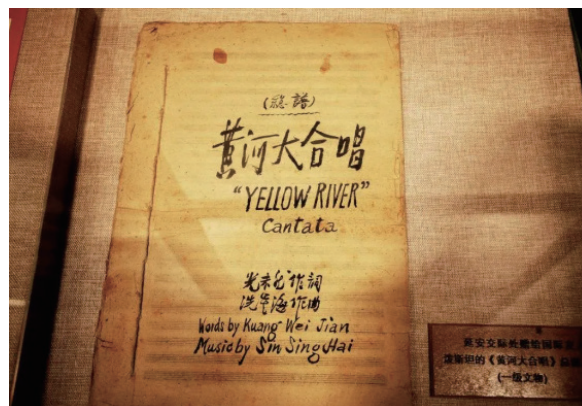 (总谱)
黄河大合唱
"YELLOW RIVER"
Cantata
光未然作詞
洗星海作曲
Words by Kuang Wei Jian
Music by Sin Sing Hai
延安交际处赠给国际友
的《黄河大合唱》总谱
(一级文物)